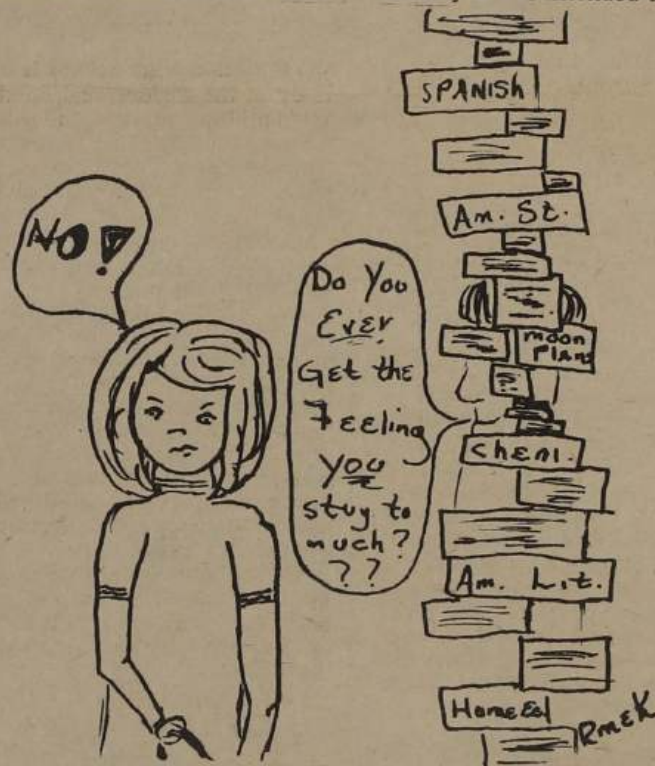 NO!
Do You
Ever
Get the
Feeling
you
stuy to
much?
??
SPANISH
Am. St.
moon
Plans
chem.
Am. Lit.
Home Ed
RmEK